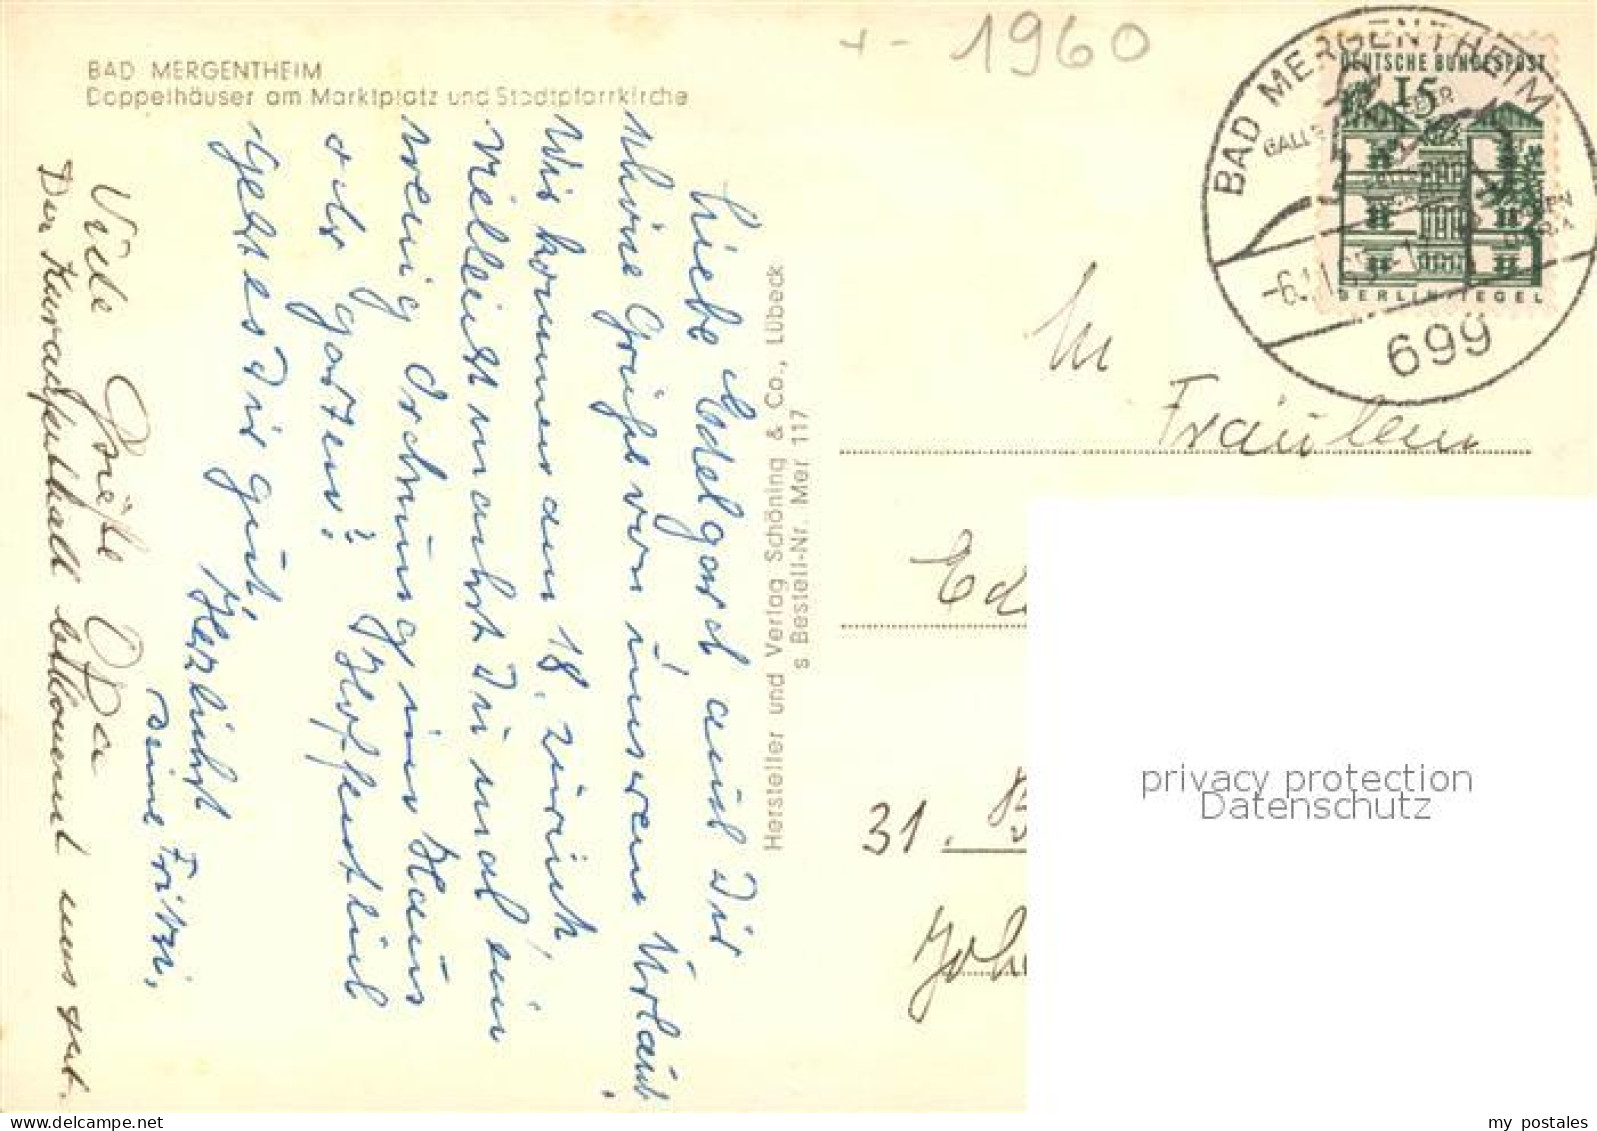 BAD MERGENTHEIM
Doppelhäuser am Marktplatz und Stadtpfarrkirche
+ - 1960
Liebe Edelgard auch Dir
schöne Grüße von unserem Urlaub.
Wir kommen am 18. zurück,
vielleicht machst Du mal ein
wenig Ordnung im Haus
oder garten? Hoffentlich
geht es Dir gut.
Herzlichst
Deine Fritzi.
Viele Grüße Opa
Der Kuraufenthalt bekommt uns gut.
Hersteller und Verlag Schöning & Co., Lübeck
s Bestell-Nr. Mer 117
DEUTSCHE BUNDESPOST
15
BERLIN-TEGEL
BAD MERGENTHEIM
699
Fräulein
31.
privacy protection
Datenschutz
my postales